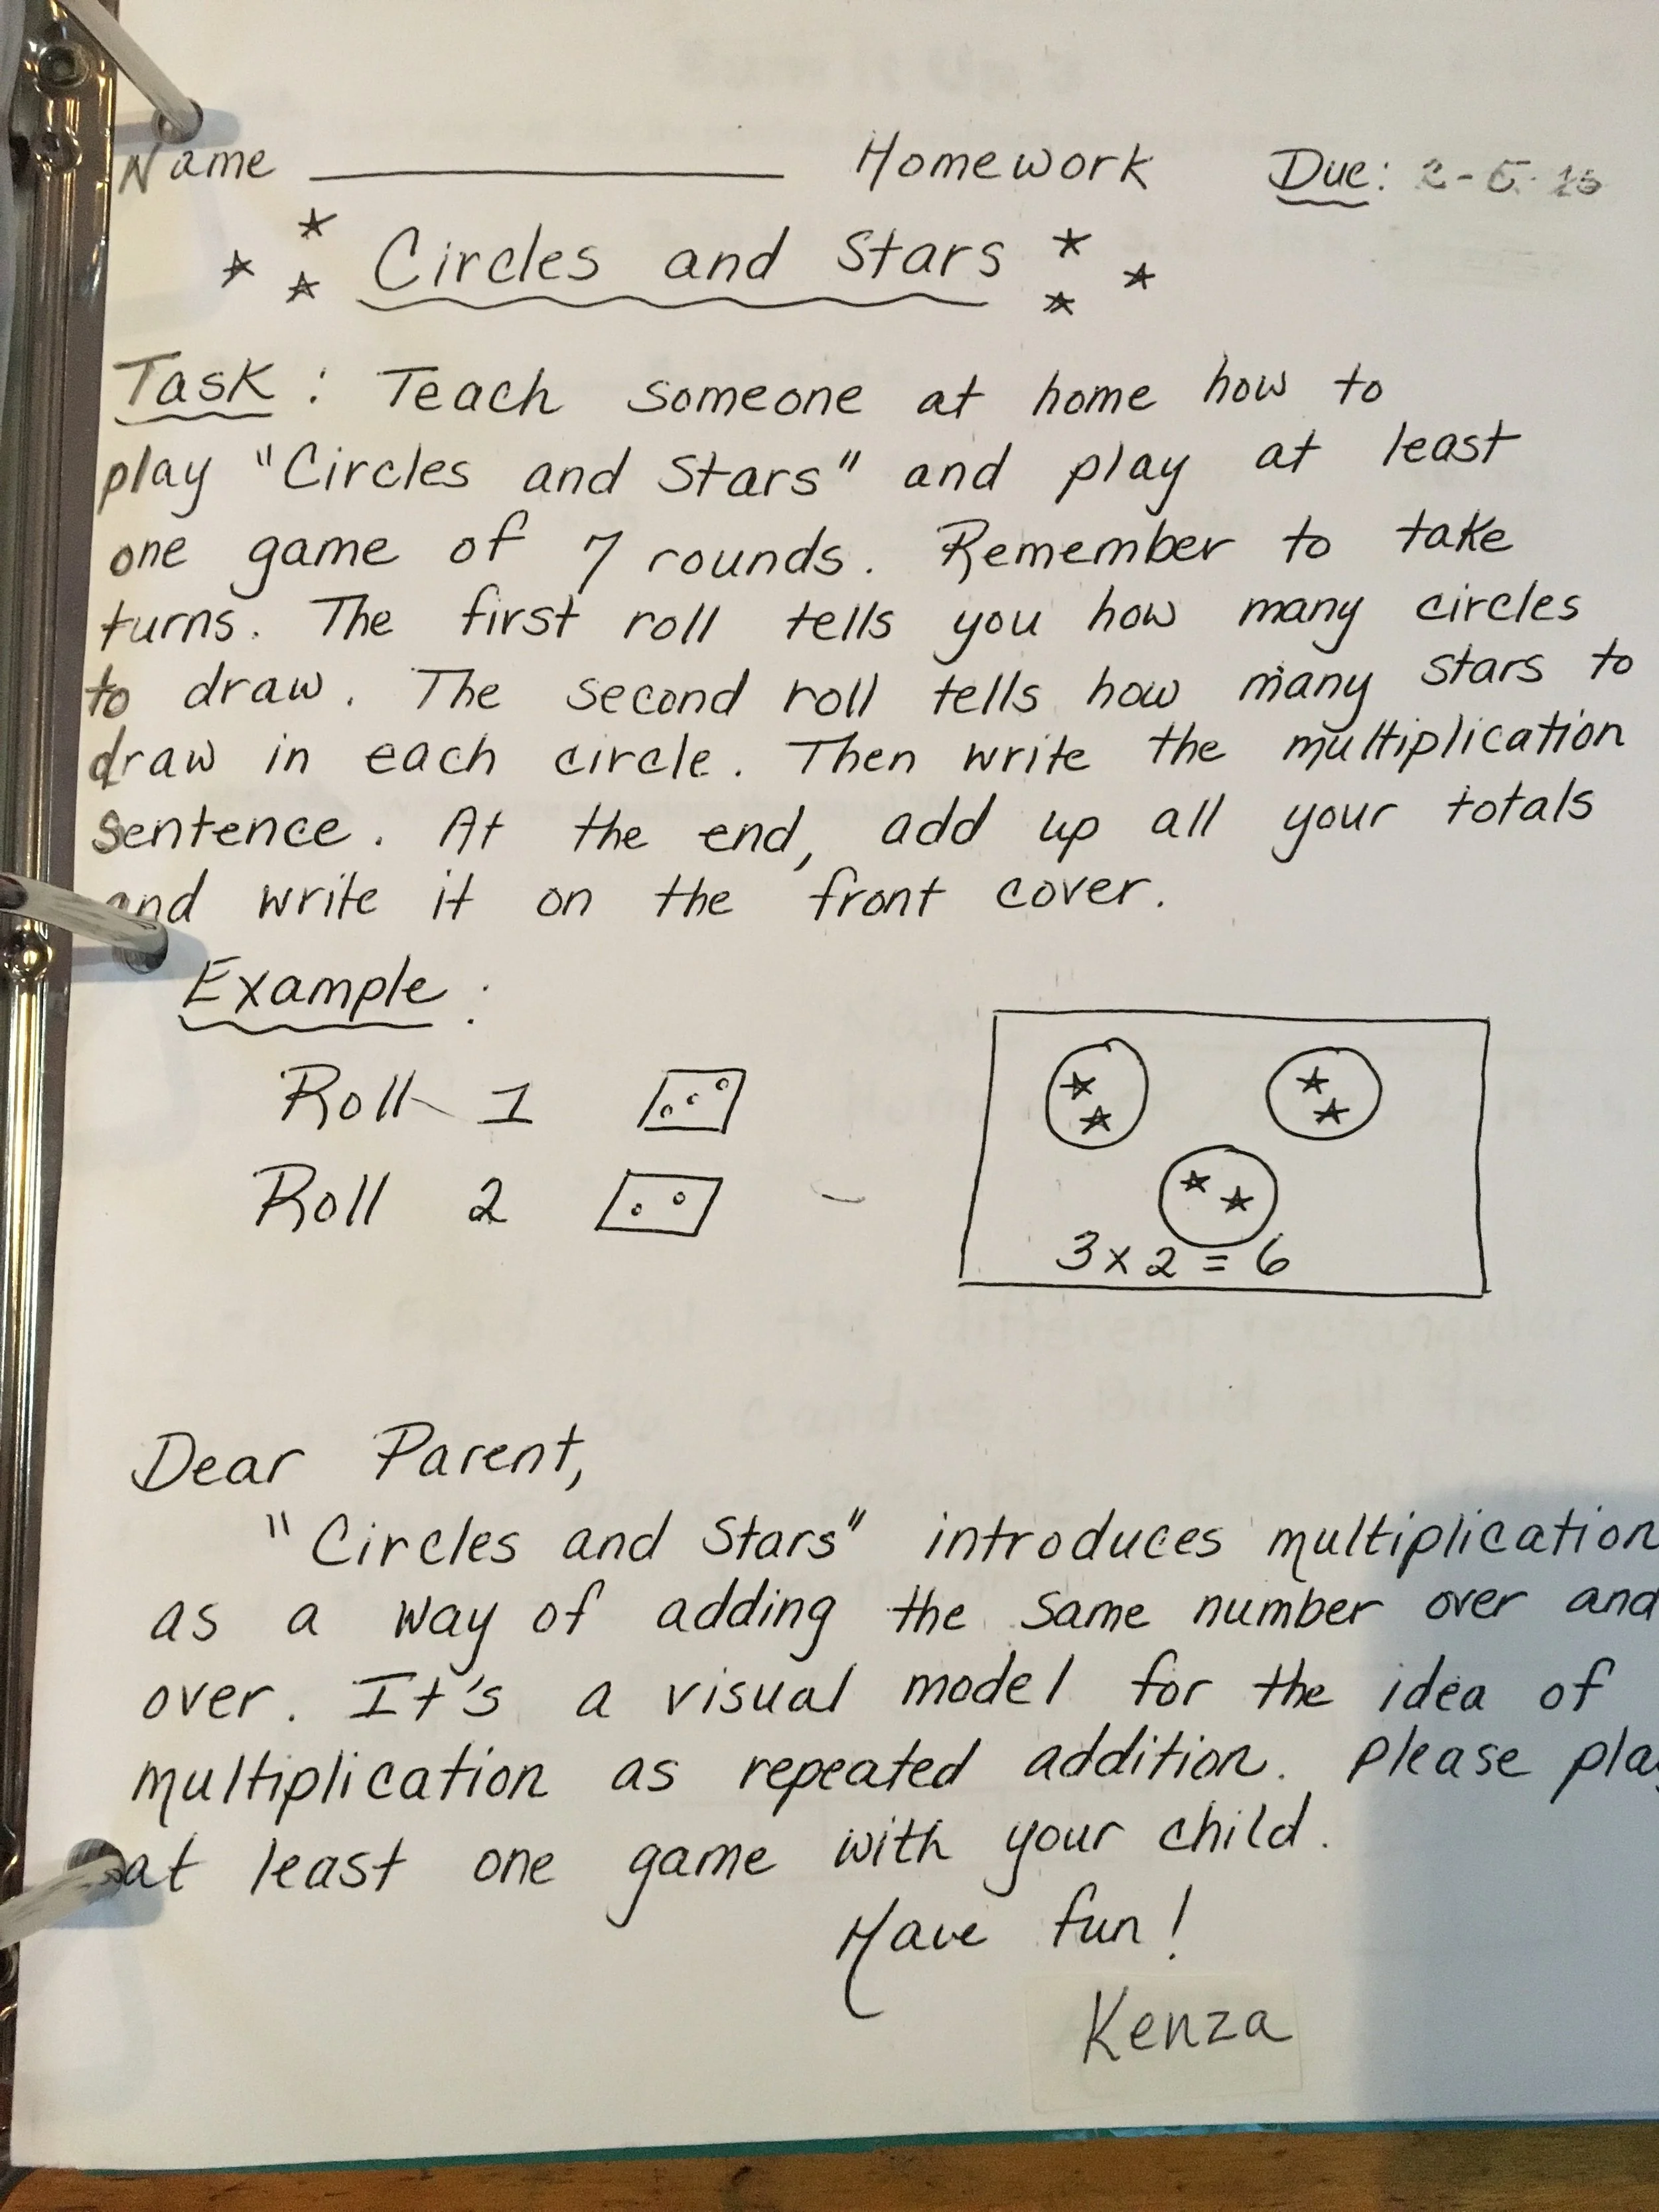 Name Homework Due:
Circles and Stars
Task: Teach someone at home how to
play "Circles and Stars" and play at least
one game of 7 rounds. Remember to take
turns. The first roll tells you how many circles
to draw. The second roll tells how many stars to
draw in each circle. Then write the multiplication
sentence. At the end, add up all your totals
and write it on the front cover.
Example:
Roll 1
Roll 2
3x2=6
Dear Parent,
"Circles and Stars" introduces multiplication
as a way of adding the same number over and
over. It's a visual model for the idea of
multiplication as repeated addition. Please play
at least one game with your child.
Have fun!
Kenza